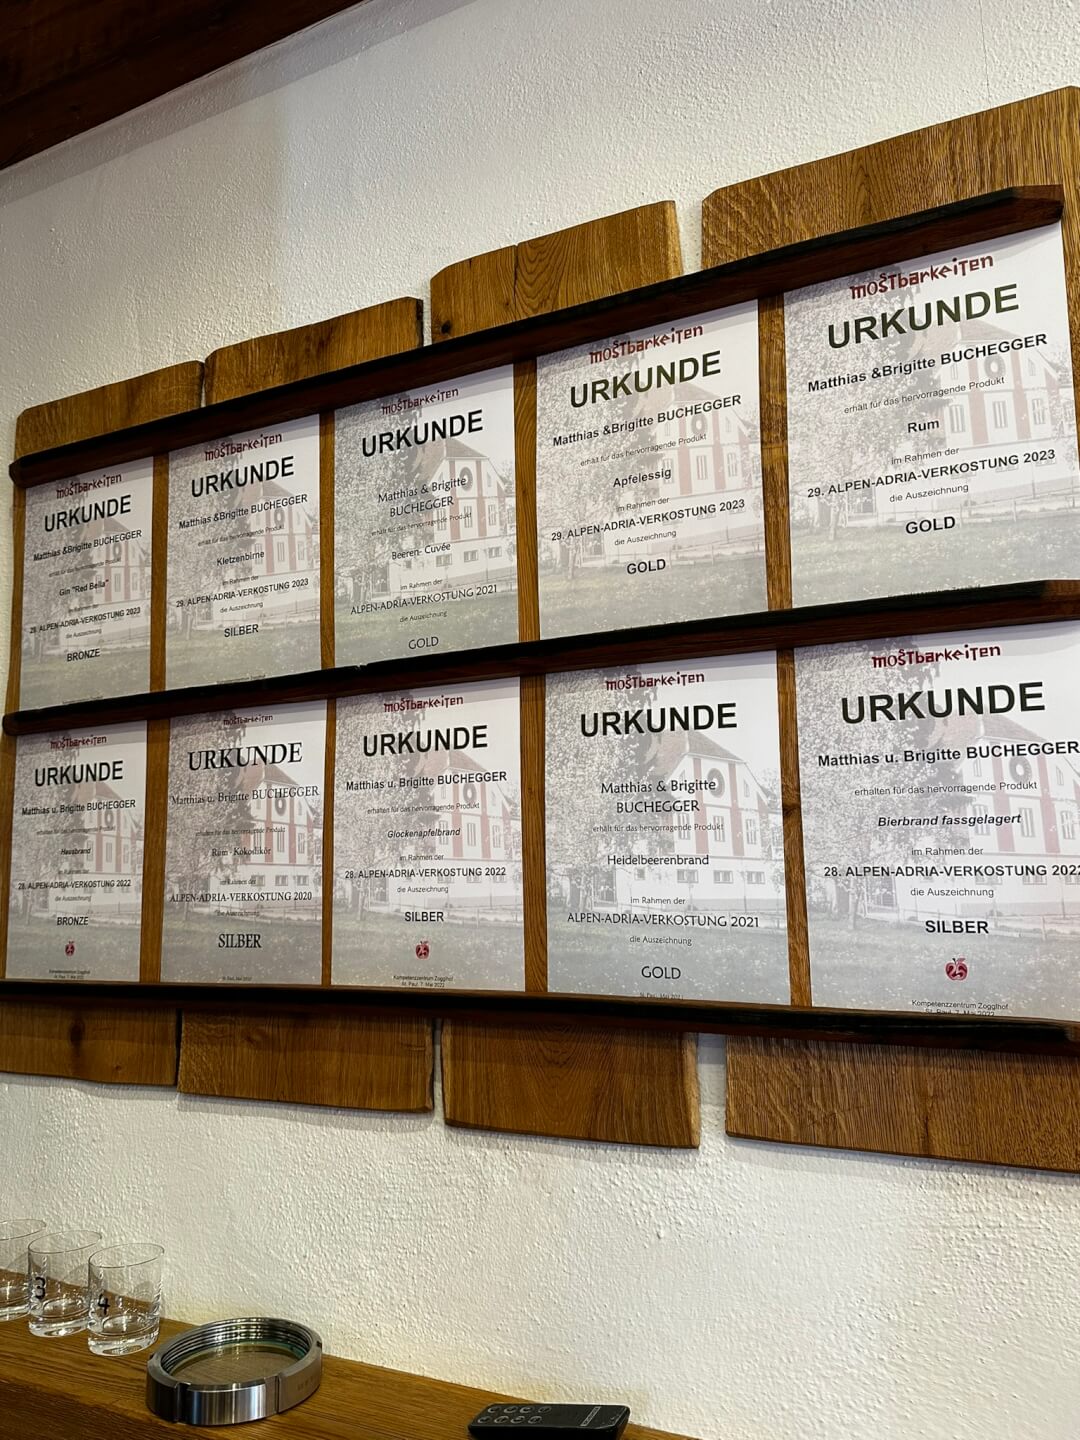 mostbarkeiten
URKUNDE
Matthias &Brigitte BUCHEGGER
erhält für das hervorragende Produkt
Gin "Red Bella"
im Rahmen der
29. ALPEN-ADRIA-VERKOSTUNG 2023
die Auszeichnung
BRONZE
mostbarkeiten
URKUNDE
Matthias &Brigitte BUCHEGGER
erhält für das hervorragende Produkt
Kletzenbirne
im Rahmen der
29. ALPEN-ADRIA-VERKOSTUNG 2023
die Auszeichnung
SILBER
mostbarkeiten
URKUNDE
Matthias & Brigitte
BUCHEGGER
erhält für das hervorragende Produkt
Beeren- Cuvée
im Rahmen der
ALPEN-ADRIA-VERKOSTUNG 2021
die Auszeichnung
GOLD
mostbarkeiten
URKUNDE
Matthias &Brigitte BUCHEGGER
erhält für das hervorragende Produkt
Apfelessig
im Rahmen der
29. ALPEN-ADRIA-VERKOSTUNG 2023
die Auszeichnung
GOLD
mostbarkeiten
URKUNDE
Matthias &Brigitte BUCHEGGER
erhält für das hervorragende Produkt
Rum
im Rahmen der
29. ALPEN-ADRIA-VERKOSTUNG 2023
die Auszeichnung
GOLD
mostbarkeiten
URKUNDE
Matthias u. Brigitte BUCHEGGER
erhalten für das hervorragende Produkt
Hausbrand
im Rahmen der
28. ALPEN-ADRIA-VERKOSTUNG 2022
die Auszeichnung
BRONZE
25
Kompetenzzentrum Zogglhof
St. Paul, 7. Mai 2022
mostbarkeiten
URKUNDE
Matthias u. Brigitte BUCHEGGER
erhalten für das hervorragende Produkt
Rum - Kokoslikör
im Rahmen der
ALPEN-ADRIA-VERKOSTUNG 2020
die Auszeichnung
SILBER
mostbarkeiten
URKUNDE
Matthias u. Brigitte BUCHEGGER
erhalten für das hervorragende Produkt
Glockenapfelbrand
im Rahmen der
28. ALPEN-ADRIA-VERKOSTUNG 2022
die Auszeichnung
SILBER
25
Kompetenzzentrum Zogglhof
St. Paul, 7. Mai 2022
mostbarkeiten
URKUNDE
Matthias & Brigitte
BUCHEGGER
erhält für das hervorragende Produkt
Heidelbeerenbrand
im Rahmen der
ALPEN-ADRIA-VERKOSTUNG 2021
die Auszeichnung
GOLD
mostbarkeiten
URKUNDE
Matthias u. Brigitte BUCHEGGER
erhalten für das hervorragende Produkt
Bierbrand fassgelagert
im Rahmen der
28. ALPEN-ADRIA-VERKOSTUNG 2022
die Auszeichnung
SILBER
25
Kompetenzzentrum Zogglhof
St. Paul, 7. Mai 2022
3
4